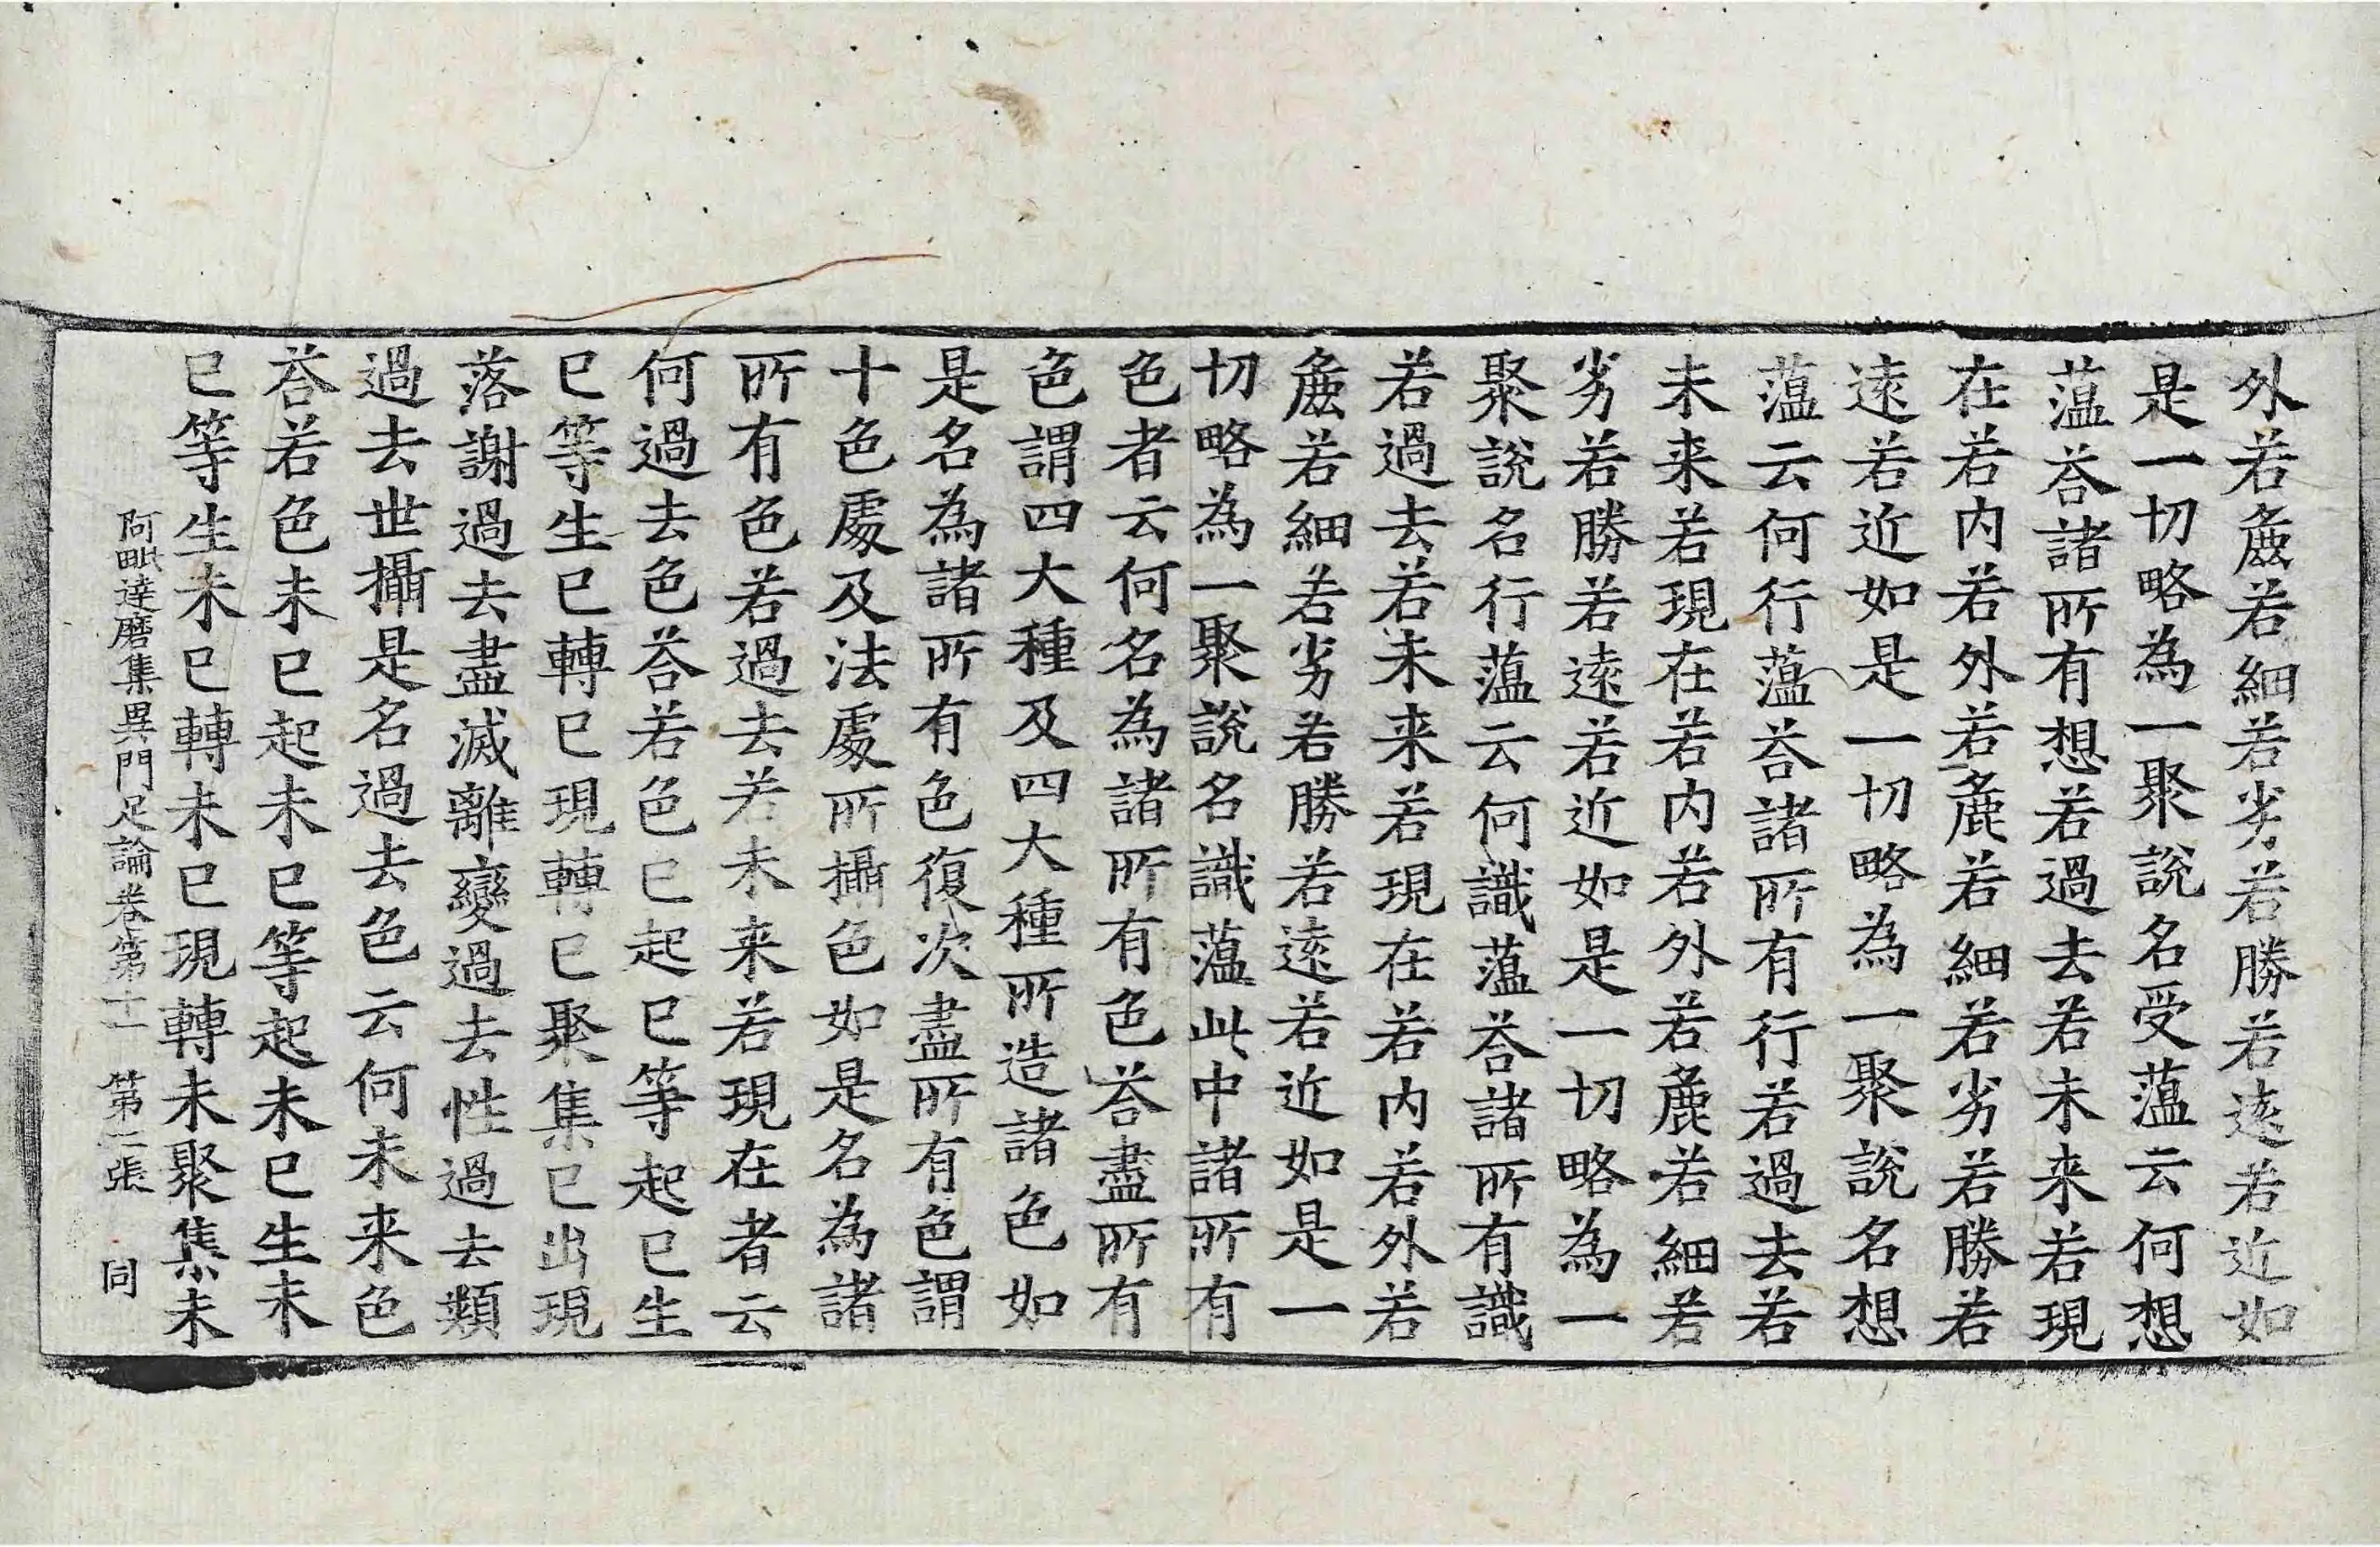 外若麁若細若劣若勝若遠若近如
是一切略為一聚說名受蕰云何想
蕰荅諸所有想若過去若未来若現
在若内若外若麁若細若劣若勝若
遠若近如是一切略為一聚說名想
蕰云何行蕰荅諸所有行若過去若
未来若現在若内若外若麁若細若
劣若勝若遠若近如是一切略為一
聚說名行蕰云何識蕰荅諸所有識
若過去若未来若現在若内若外若
麁若細若劣若勝若遠若近如是一
切略為一聚說名識蕰此中諸所有
色者云何名為諸所有色荅盡所有
色謂四大種及四大種所造諸色如
是名為諸所有色復次盡所有色謂
十色處及法處所攝色如是名為諸
所有色若過去若未来若現在者云
何過去色荅若色已起已等起已生
已等生已轉已現轉已聚集已出現
落謝過去盡滅離變過去性過去類
過去世攝是名過去色云何未来色
荅若色未已起未已等起未已生未
已等生未已轉未已現轉未聚集未
阿毗達磨集異門足論卷第十一 第二張 同